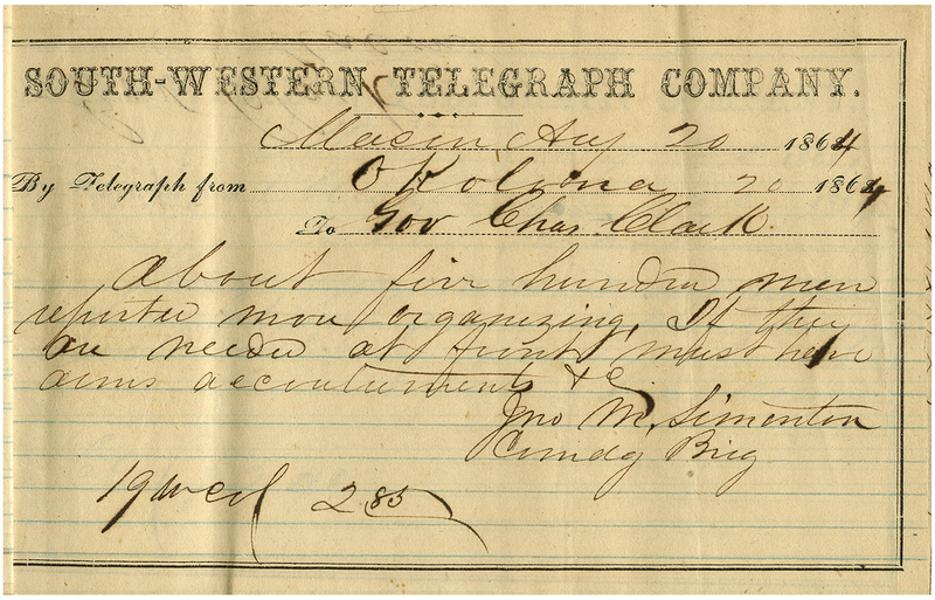 SOUTH-WESTERN TELEGRAPH COMPANY.
Macon Aug 20 1864
By Telegraph from Okolona 20 1864
To Gov Chas Clark
About five hundred men
reported mou organizing, If they
are needed at front must have
arms accoutrements &c
Jno M. Simonton
Comdg Brig
19 2 85